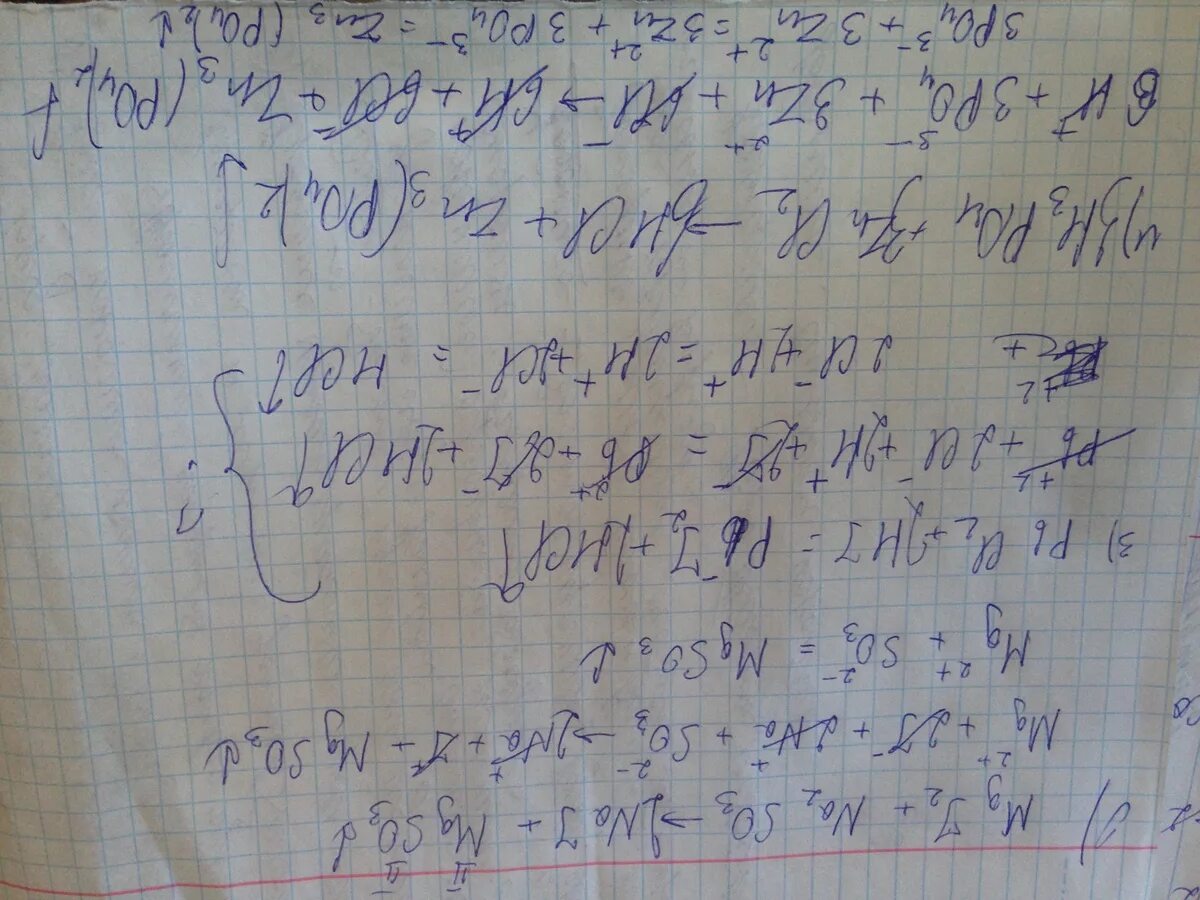 2) MgJ₂ + Na₂SO₃ → 2NaJ + MgSO₃↓
Mg²⁺ + 2J⁻ + 2Na⁺ + SO₃²⁻ → 2Na⁺ + J⁻ + MgSO₃↓
Mg²⁺ + SO₃²⁻ = MgSO₃↓
3) PbCl₂ + 2HJ = PbJ₂ + 2HCl↑
Pb⁺² + 2Cl⁻ + 2H⁺ + 2J⁻ = Pb²⁺ + 2J⁻ + 2HCl↑
2Cl⁻ + H⁺ = 2H⁺ + 2Cl⁻ = HCl↑
4) 3H₃PO₄ + 3ZnCl₂ → 6HCl + Zn₃(PO₄)₂↓
6H⁺ + 3PO₄³⁻ + 3Zn²⁺ + 6Cl⁻ → 6H⁺ + 6Cl⁻ + Zn₃(PO₄)₂↓
3PO₄³⁻ + 3Zn²⁺ = 3Zn²⁺ + 3PO₄³⁻ = Zn₃(PO₄)₂↓